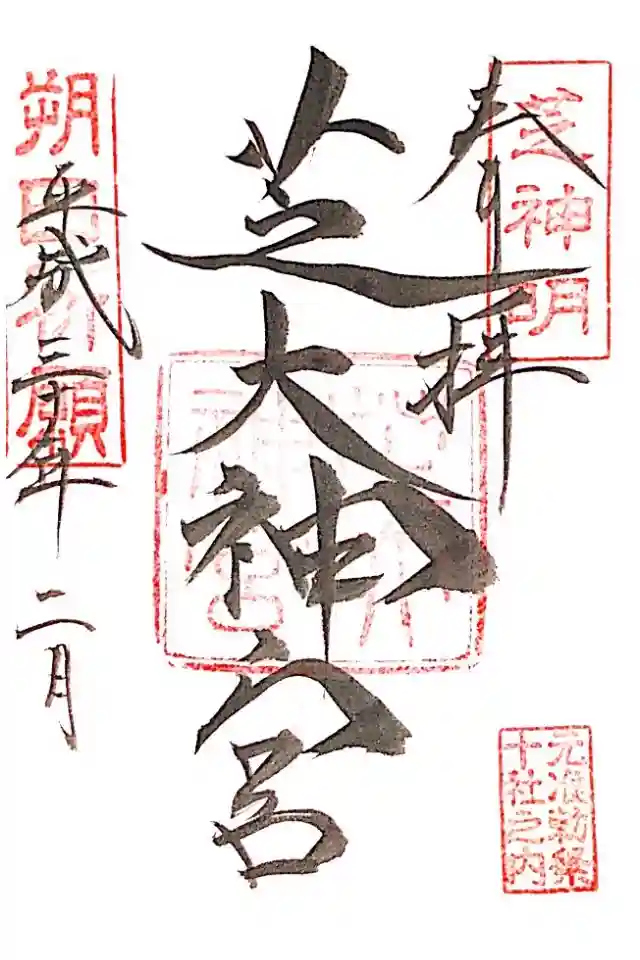 奉拝
芝神明
芝大神宮
芝大神宮
平成三十年
二月
朔日祈願
元准勅祭
十社之内